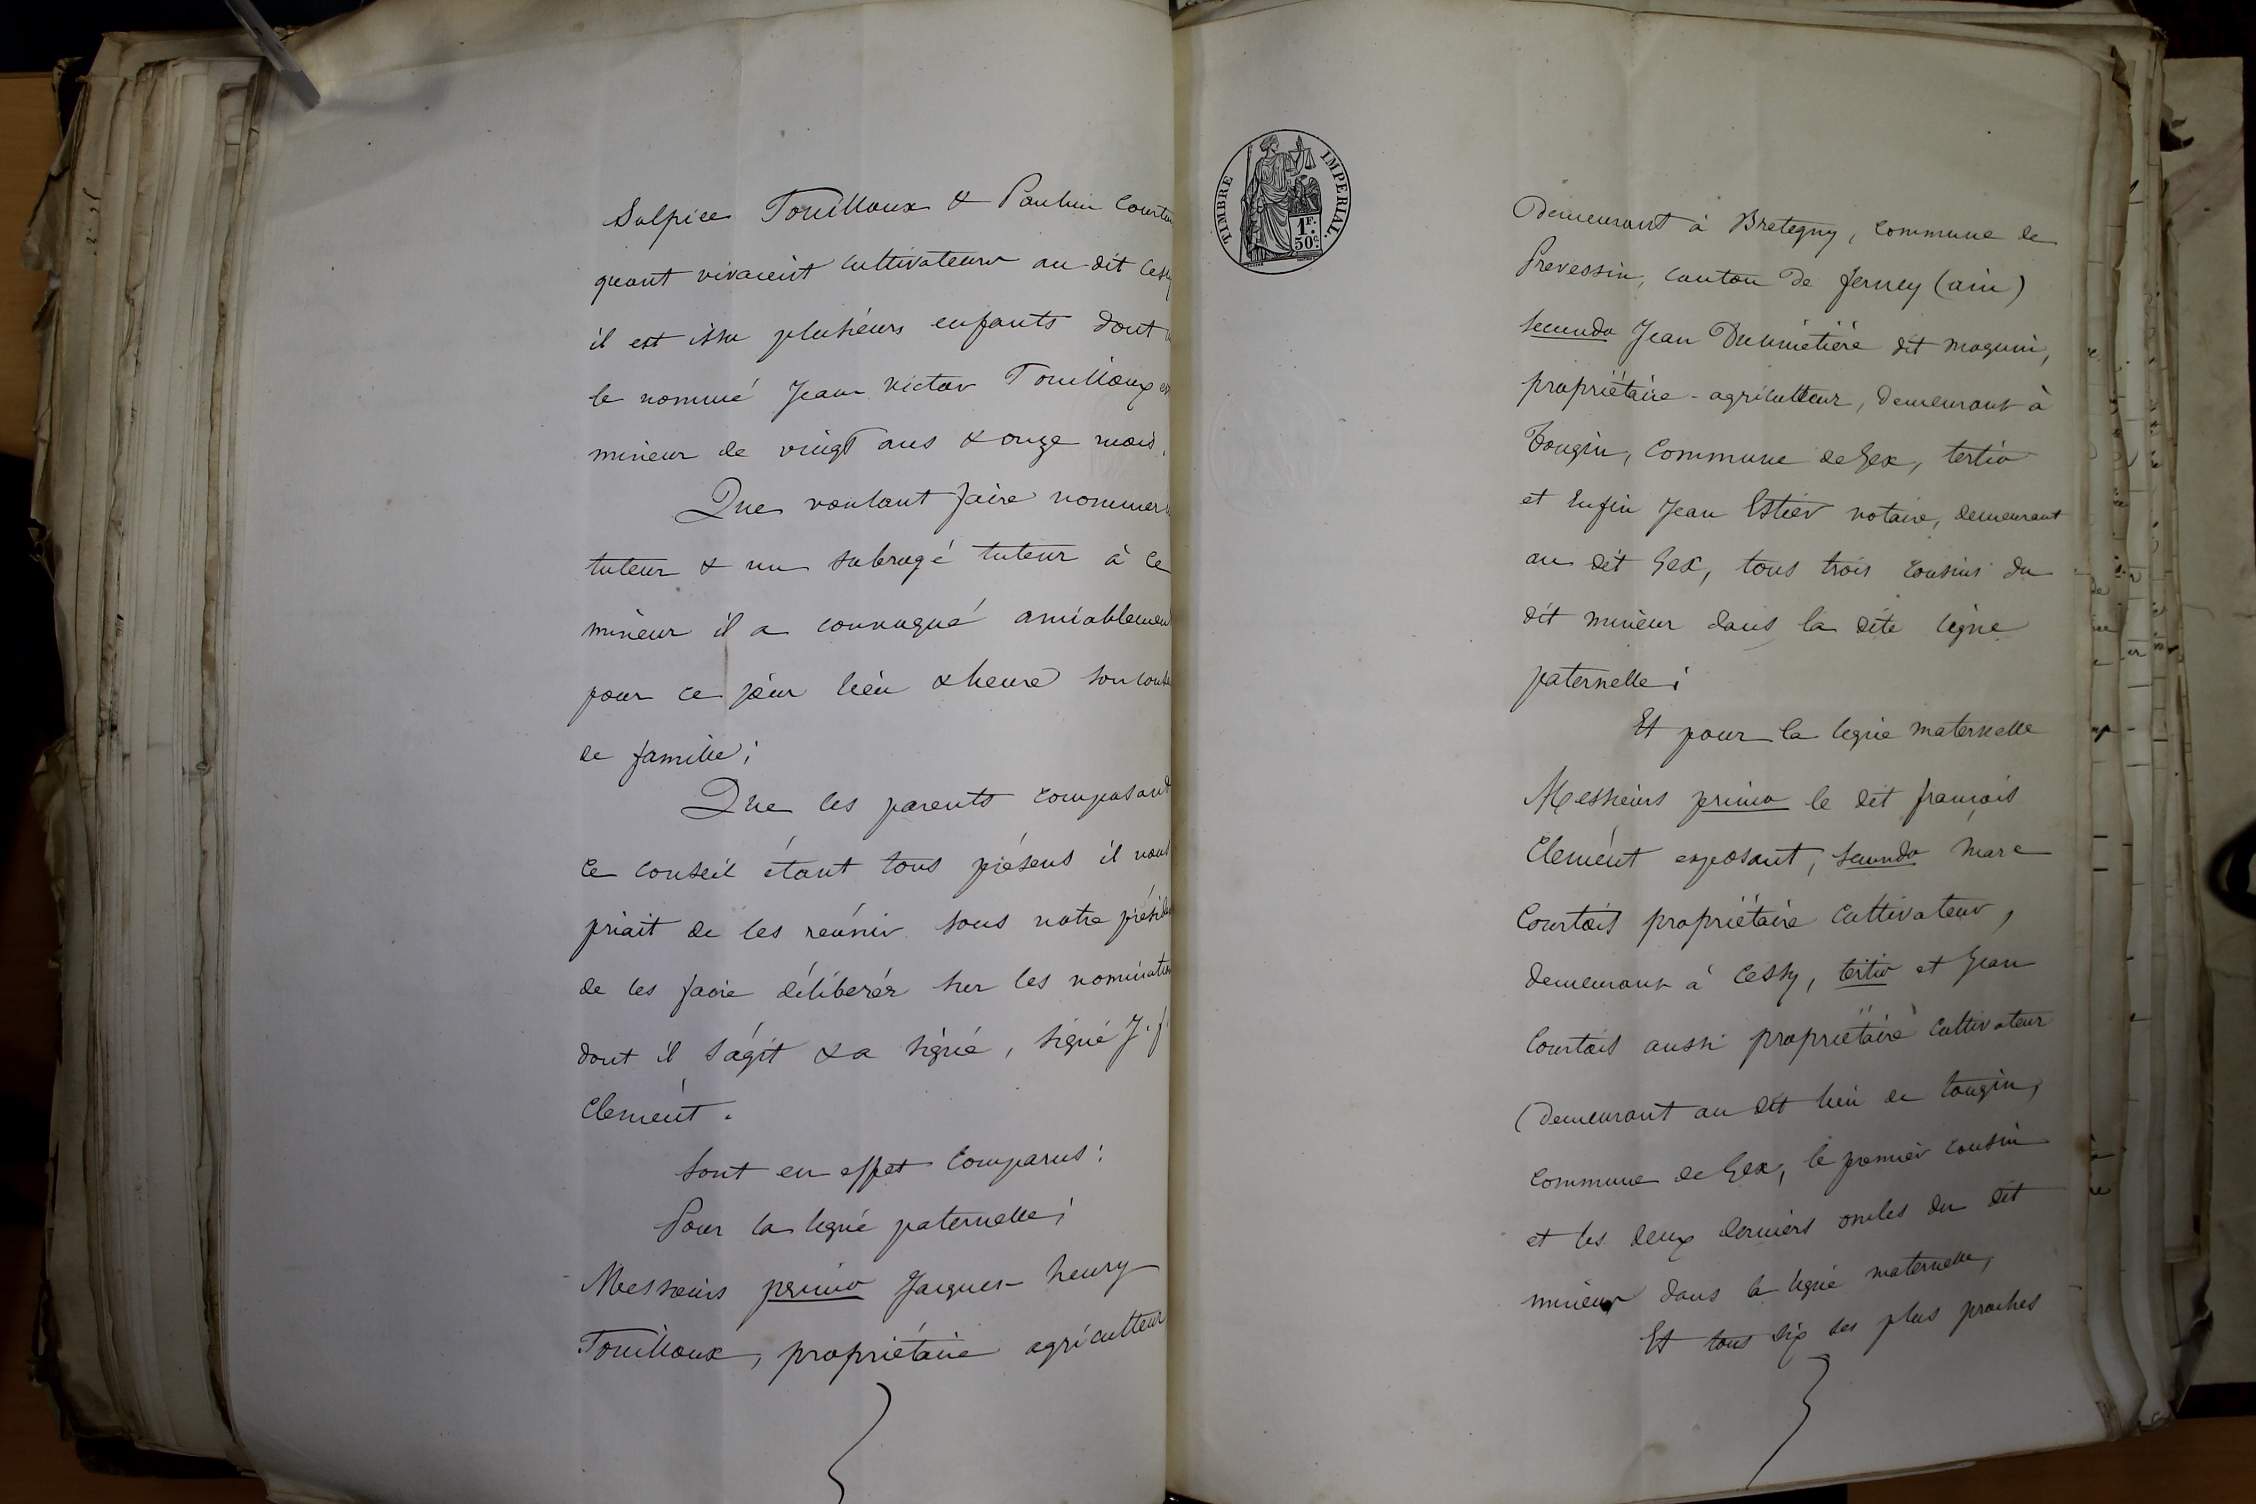 Sulpice Touilloux & Paulin Courtois
quant vivaient cultivateurs au dit Cessy
il est issu plusieurs enfants dont
le nommé Jean Victor Touilloux
mineur de vingt ans & onze mois.
Que voulant faire nommer
tuteur & un subrogé tuteur à ce
mineur il a convoqué amiablement
pour ce jour lieu & heure son conseil
de famille;
Que les parents composant
ce conseil étant tous présens il nous
priait de les réunir sous notre présidence
de les faire délibérer sur les nominations
dont il s'agit & a signé, signé J. f.
Clement.
Sont en effet comparus:
Pour la ligne paternelle;
Messieurs primo Jacques henry
Touilloux, propriétaire agriculteur
TIMBRE IMPERIAL.
1F.
50c.
Demeurant à Bretegny, commune de
Prevessin, canton de ferney (ain)
secundo Jean Dumetière dit magnin,
propriétaire-agriculteur, demeurant à
Tougin, commune de Gex, tertio
et enfin Jean Estier notaire, demeurant
au dit Gex, tous trois cousins du
dit mineur dans la dite ligne
paternelle;
Et pour la ligne maternelle
Messieurs primo le dit françois
Clement exposant, secundo marc
Courtois propriétaire cultivateur,
demeurant à Cessy, tertio et Jean
Courtois aussi propriétaire cultivateur
Demeurant au dit lieu de tougin,
commune de Gex, le premier cousin
et les deux derniers oncles du dit
mineur dans la ligne maternelle,
Et tous six des plus proches